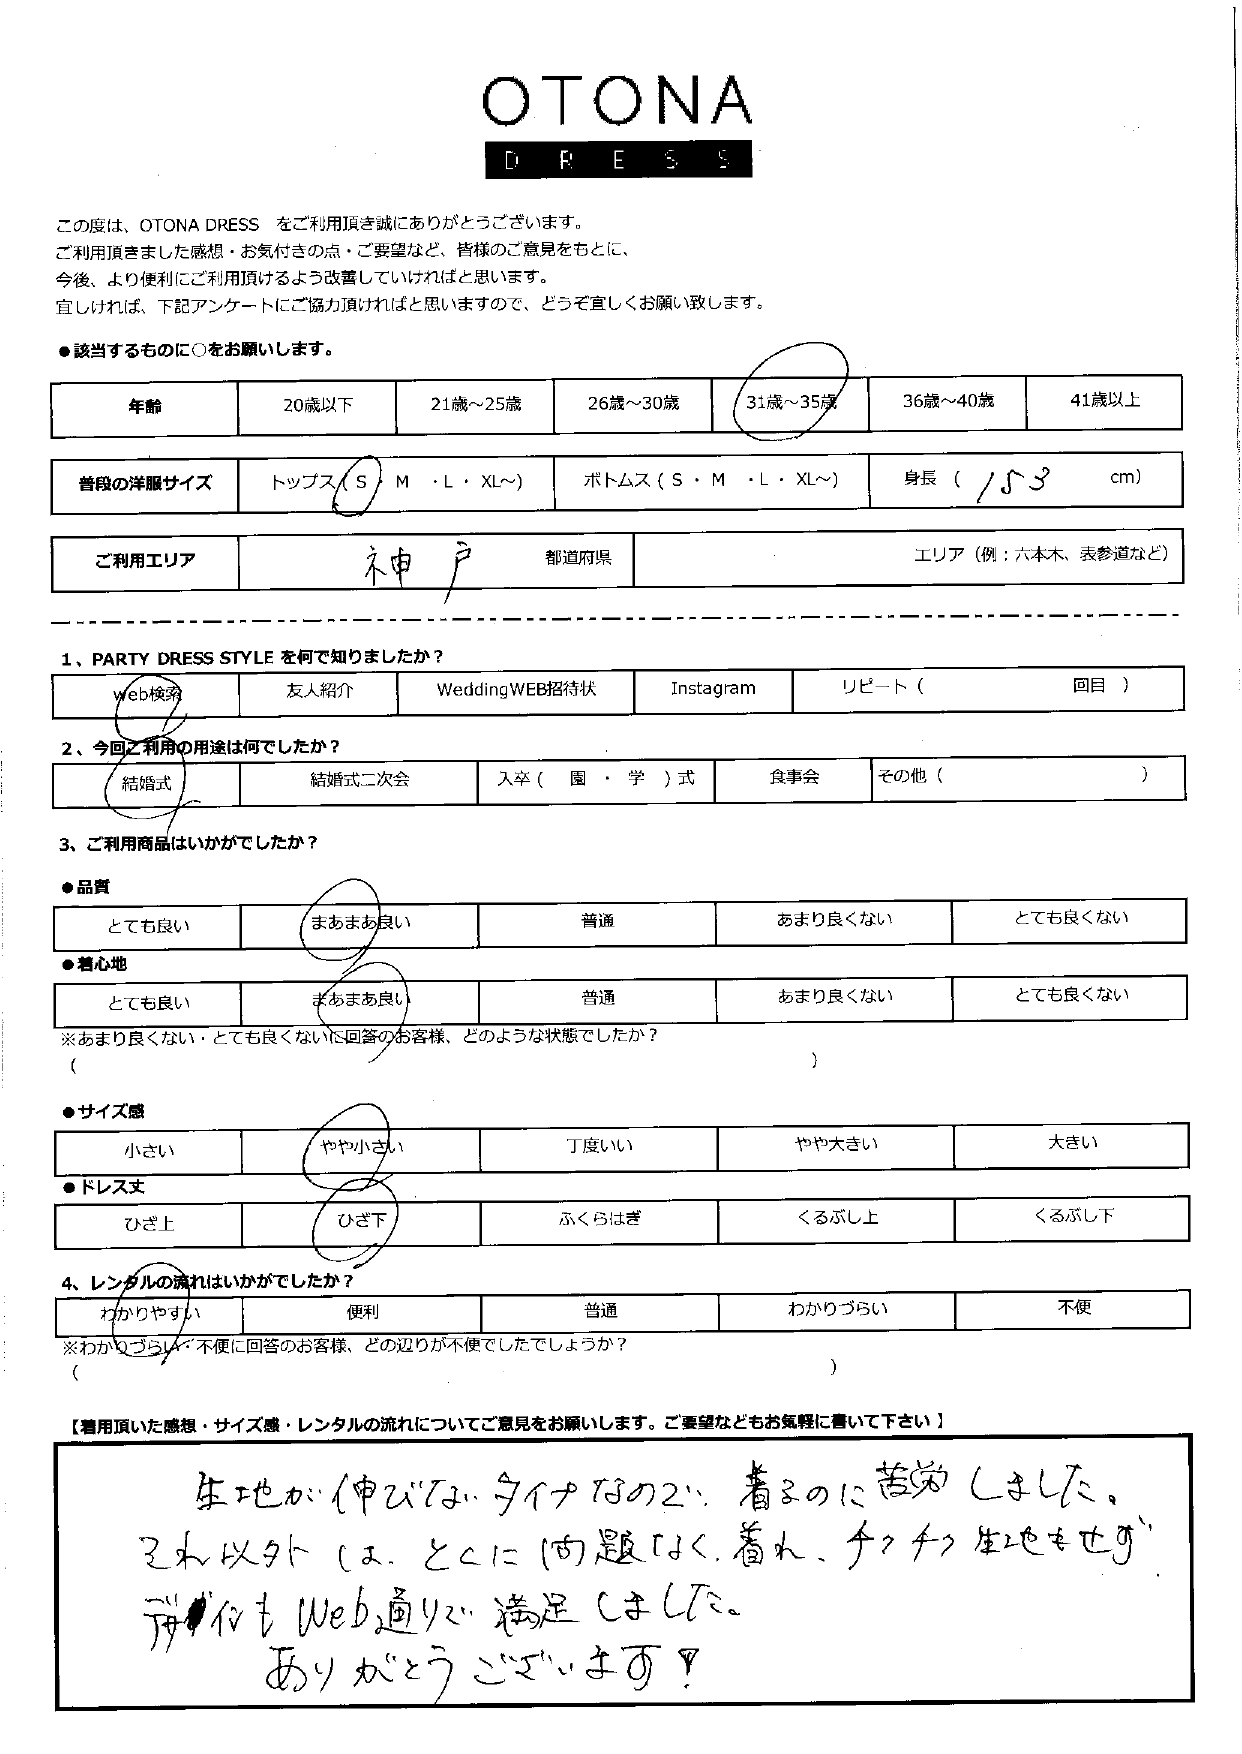 OTONA
DRESS
この度は、OTONA DRESS　をご利用頂き誠にありがとうございます。
ご利用頂きました感想・お気付きの点・ご要望など、皆様のご意見をもとに、
今後、より便利にご利用頂けるよう改善していければと思います。
宜しければ、下記アンケートにご協力頂ければと思いますので、どうぞ宜しくお願い致します。
●該当するものに○をお願いします。
年齢 20歳以下 21歳～25歳 26歳～30歳 31歳～35歳 36歳～40歳 41歳以上
普段の洋服サイズ トップス ( S ・ M ・L ・ XL～) ボトムス ( S ・ M ・L ・ XL～) 身長 ( 153 cm)
ご利用エリア 神戸 都道府県 エリア（例：六本木、表参道など）
1、PARTY DRESS STYLE を何で知りましたか？
web検索 友人紹介 WeddingWEB招待状 Instagram リピート ( 回目 )
2、今回ご利用の用途は何でしたか？
結婚式 結婚式二次会 入卒 ( 園 ・ 学 ) 式 食事会 その他 ( )
3、ご利用商品はいかがでしたか？
●品質
とても良い まあまあ良い 普通 あまり良くない とても良くない
●着心地
とても良い まあまあ良い 普通 あまり良くない とても良くない
※あまり良くない・とても良くないに回答のお客様、どのような状態でしたか？
( )
●サイズ感
小さい やや小さい 丁度いい やや大きい 大きい
●ドレス丈
ひざ上 ひざ下 ふくらはぎ くるぶし上 くるぶし下
4、レンタルの流れはいかがでしたか？
わかりやすい 便利 普通 わかりづらい 不便
※わかりづらい・不便に回答のお客様、どの辺りが不便でしたでしょうか？
( )
【着用頂いた感想・サイズ感・レンタルの流れについてご意見をお願いします。ご要望などもお気軽に書いて下さい】
生地が伸びないタイプなので、着るのに苦労しました。
それ以外は、とくに問題なく、着れ、チクチク生地もせず
デザインもWeb通りで満足しました。
ありがとうございます！